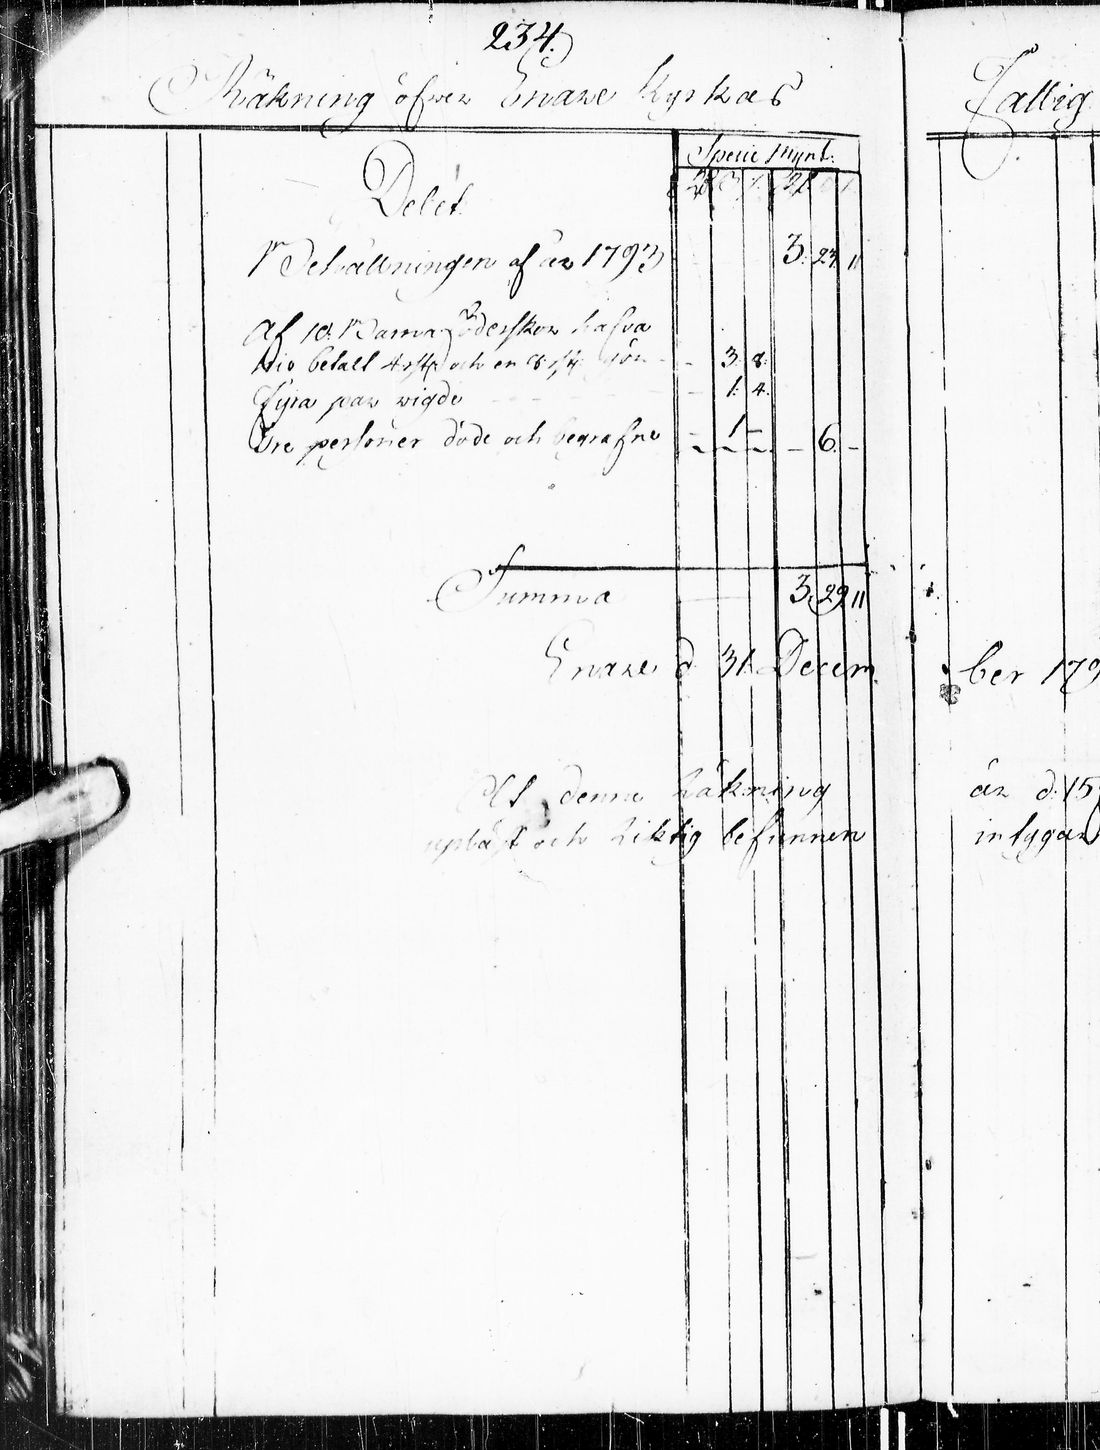 234.
Räkning öfwer Enare Kyrkas
Fattig
Specie Mynt.
Debet
Behållningen af år 1793 3. 23 11
Af 10: Barna föderskor hafva
Nio betalt 4 rst. och en 8 rst. - - 3. 8.
Fyra par wigde - - - - 1. 4.
Tre personer döde och begrafne - 1 - - 6. -
Summa 3. 29 11
Enare d. 31. Decem
ber 179
At denna Räkning
är d: 15
upläst och Riktig befunnen
intygar